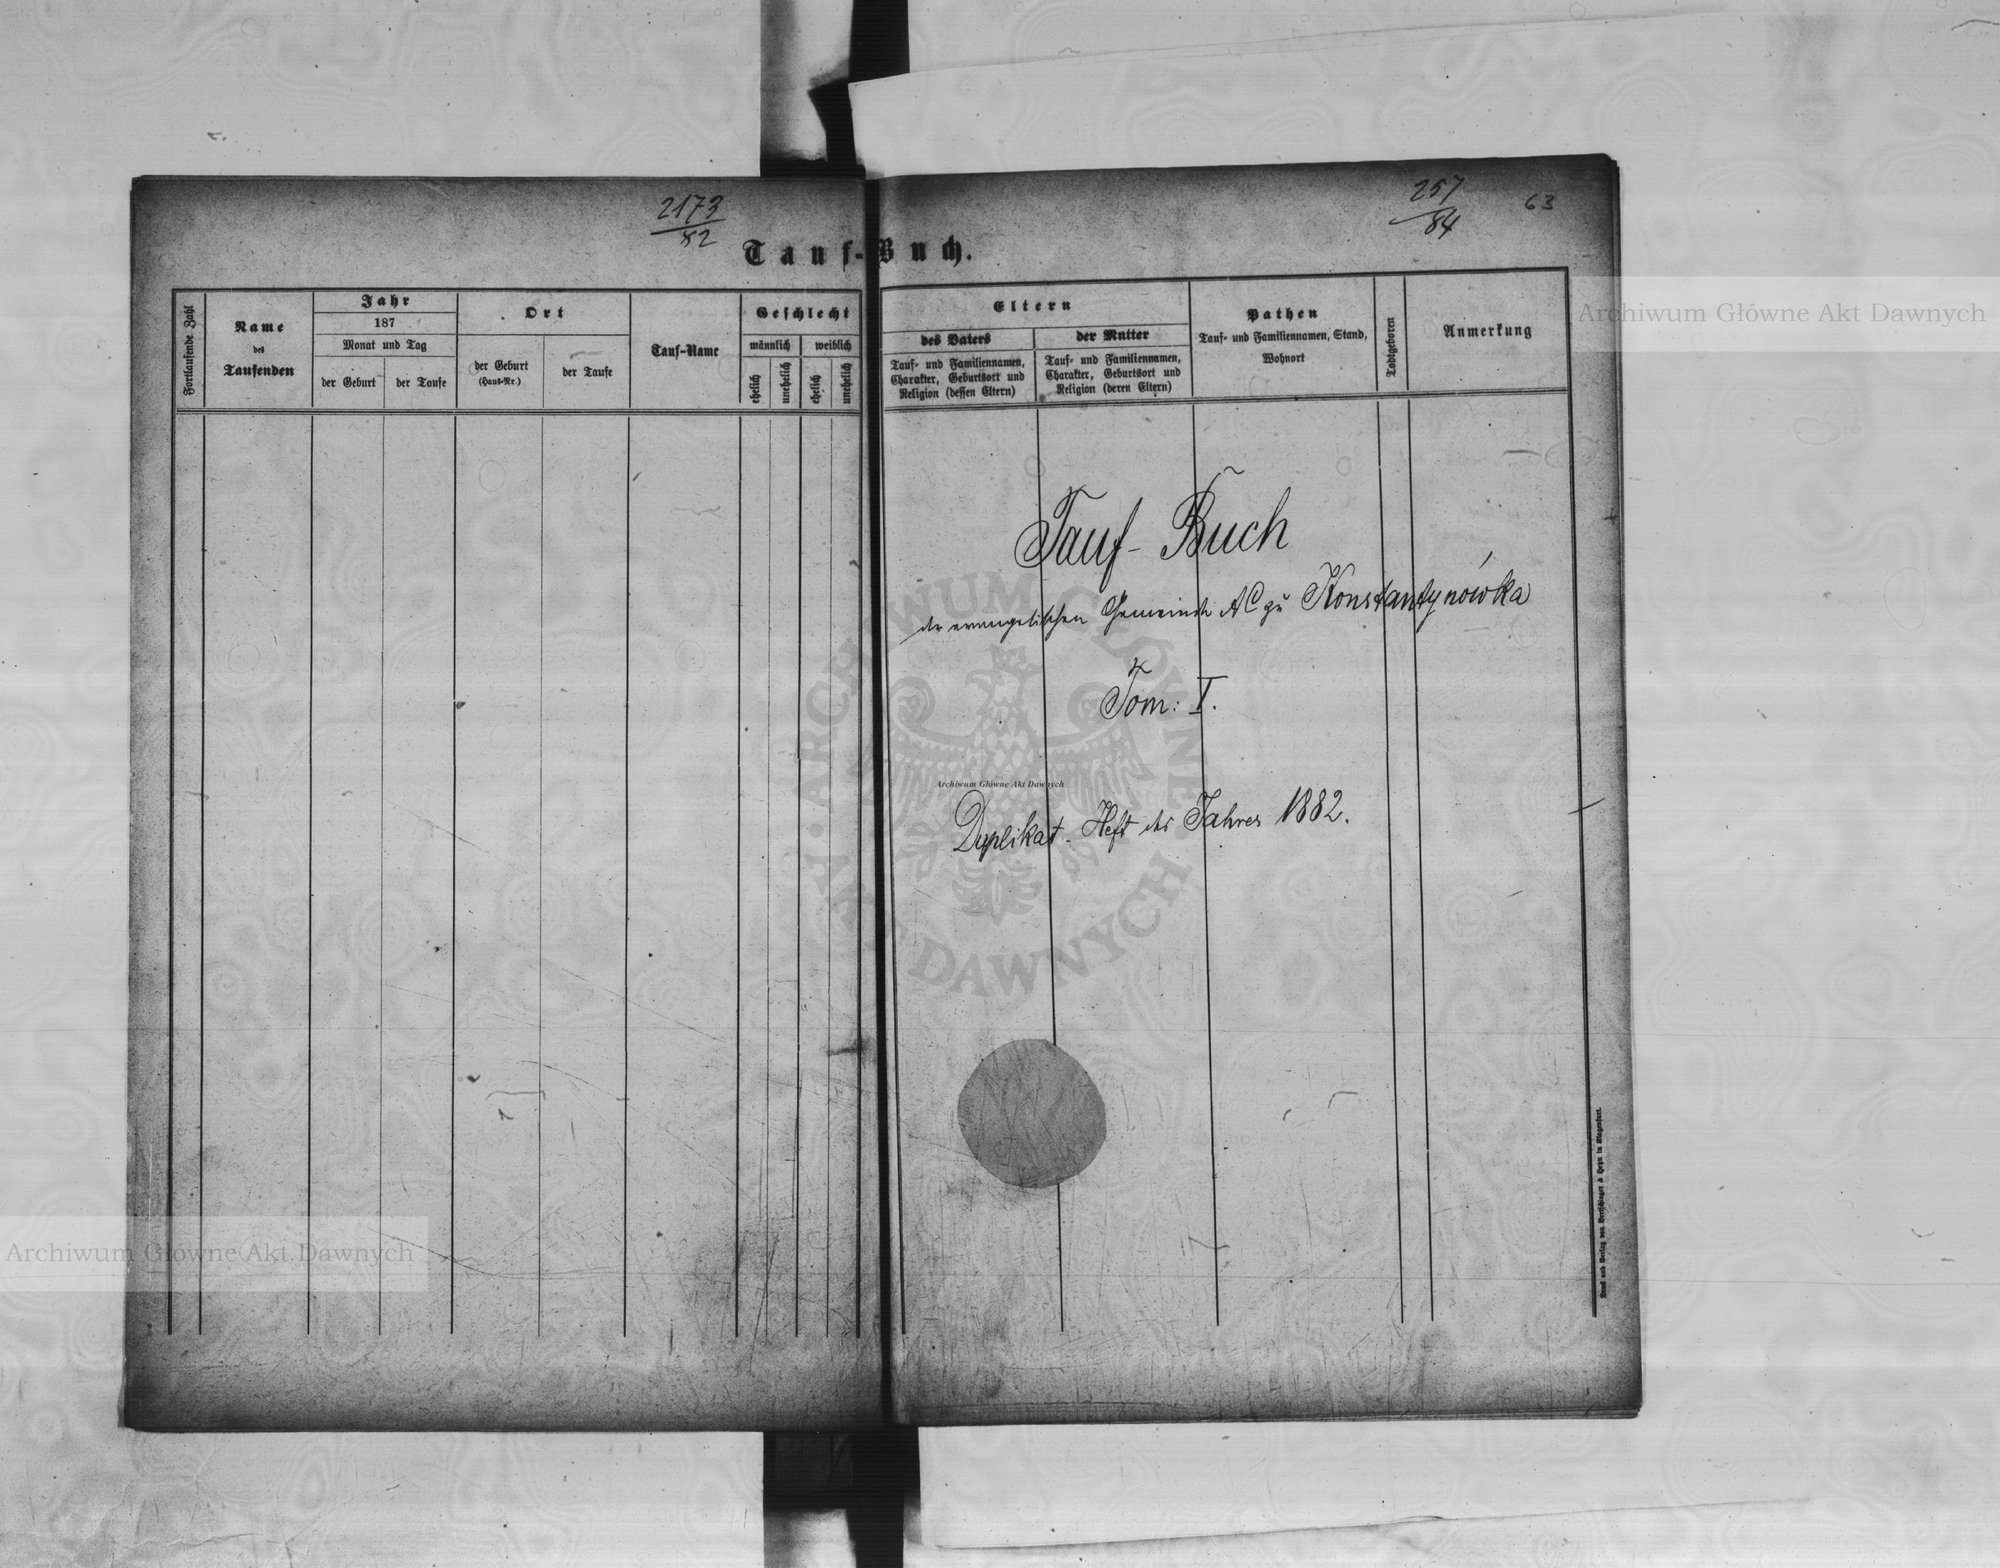 2173
82
257
84
63
Tauf-Buch.
Fortlaufende Zahl
Name
des
Taufenden
Jahr
187
Monat und Tag
der Geburt
der Taufe
Ort
der Geburt
(Haus-Nr.)
der Taufe
Tauf-Name
Geschlecht
männlich
weiblich
ehelich
unehelich
ehelich
unehelich
Eltern
des Vaters
Tauf- und Familiennamen,
Charakter, Geburtsort und
Religion (dessen Eltern)
der Mutter
Tauf- und Familiennamen,
Charakter, Geburtsort und
Religion (deren Eltern)
Pathen
Tauf- und Familiennamen, Stand,
Wohnort
Todtgeboren
Anmerkung
Tauf-Buch
der evangelischen Gemeinde AC zu Konstantynówka
Tom: I.
Duplikat-Heft des Jahres 1882.
Druck und Verlag von Bertschinger & Heyn in Klagenfurt.
Archiwum Główne Akt Dawnych
Archiwum Główne Akt Dawnych
Archiwum Główne Akt Dawnych
ARCHIWUM GŁÓWNE
AKT DAWNYCH